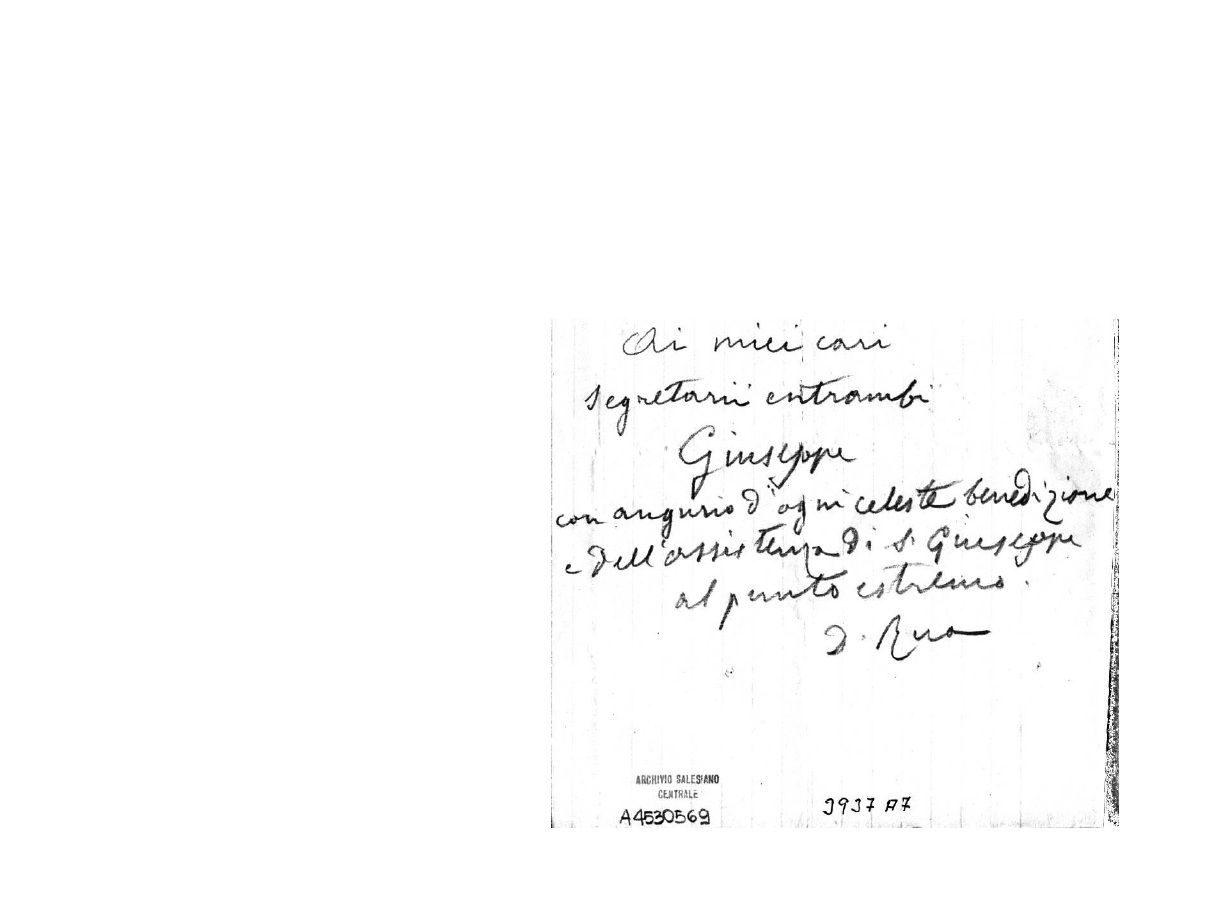 Ai miei cari
segretarii entrambi
Giuseppe
con augurio d'ogni celeste benedizione
e dell'assistenza di S. Giuseppe
al punto estremo.
D. Rua
ARCHIVIO SALESIANO
CENTRALE
A4530569
3937 A7